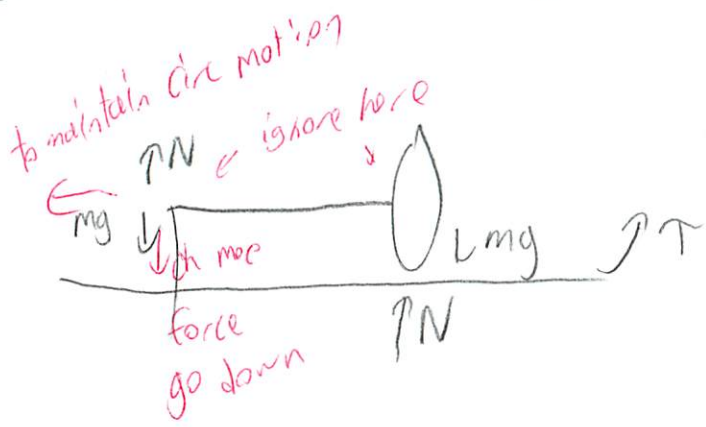 to maintain circ motion
↑N
ignore here
mg ↓
↓
force
go down
↓mg
↑N